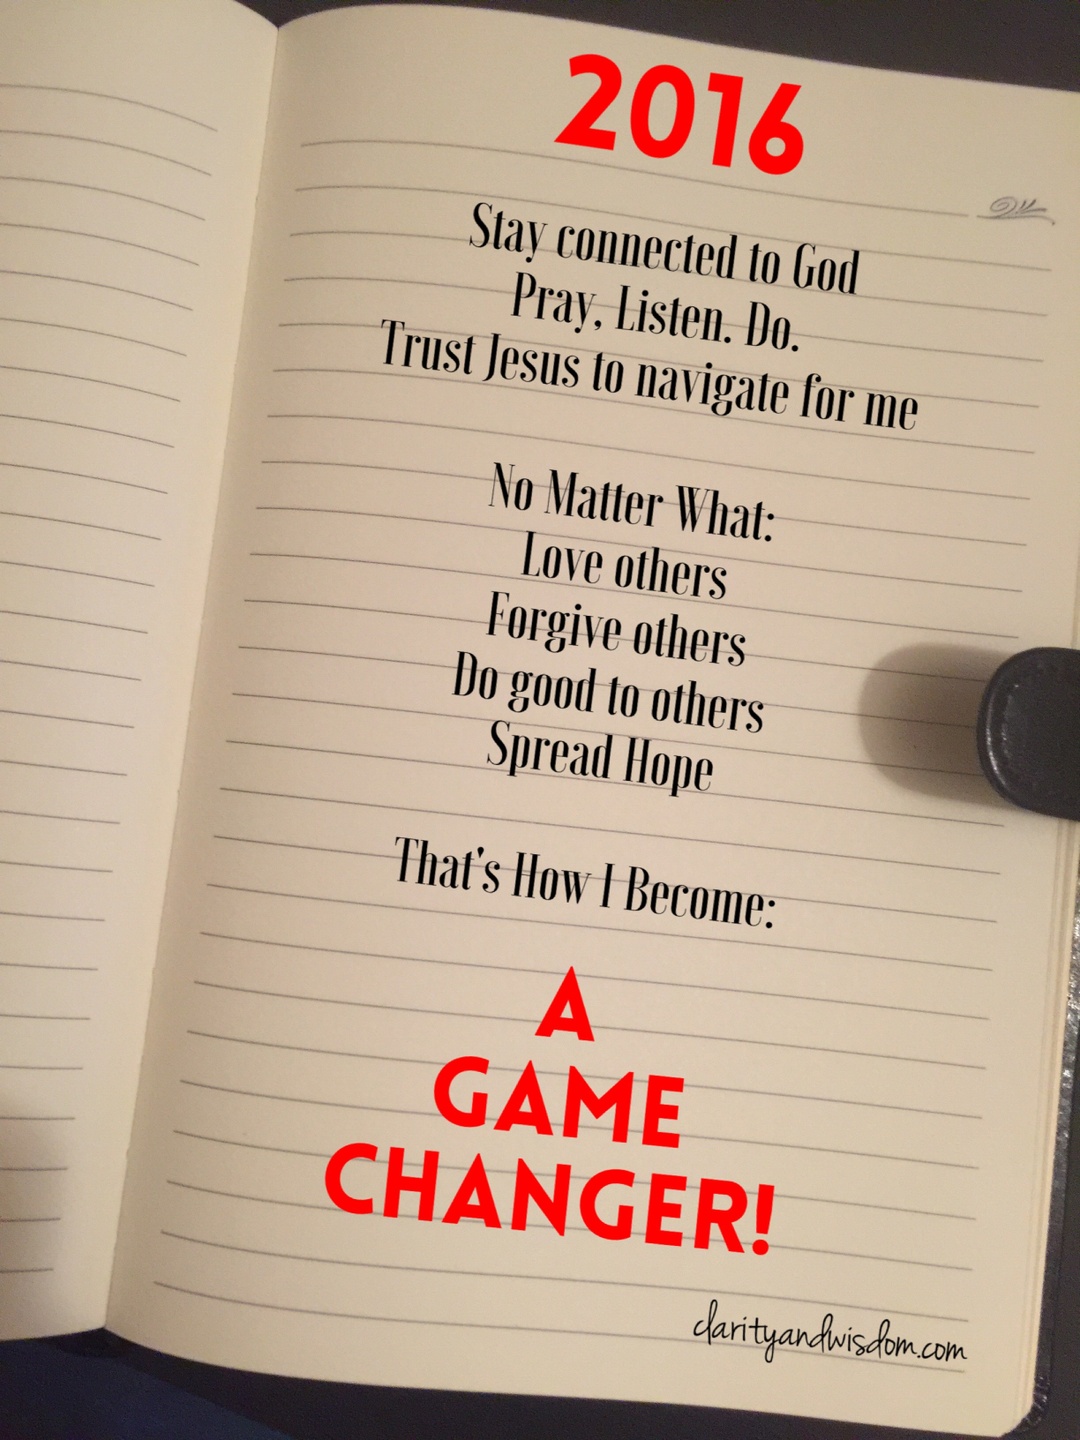 2016
Stay connected to God
Pray, Listen. Do.
Trust Jesus to navigate for me
No Matter What:
Love others
Forgive others
Do good to others
Spread Hope
That's How I Become:
A
GAME
CHANGER!
clarityandwisdom.com